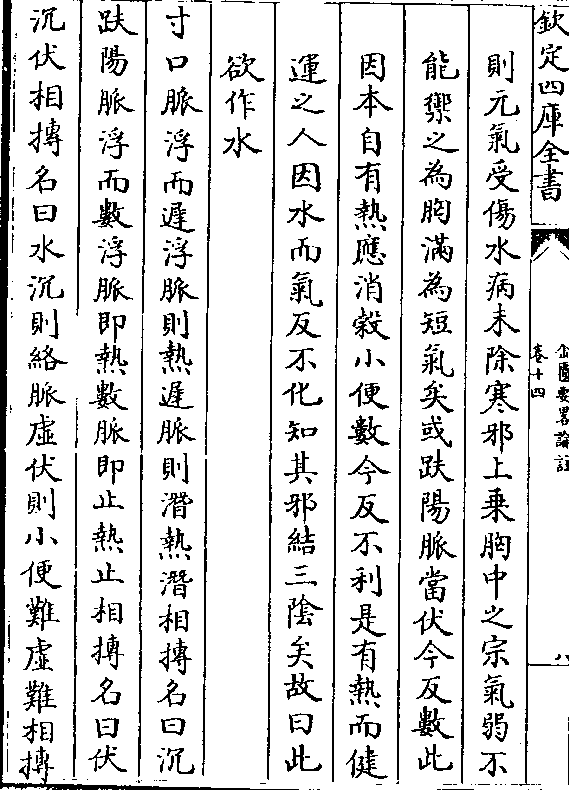 欽定四庫全書
金匱要畧論註
卷十四
八
則元氣受傷水病未除寒邪上乗胸中之宗氣弱不
能禦之為胸滿為短氣矣或趺陽脈當伏今反數此
因本自有熱應消榖小便數今反不利是有熱而健
運之人因水而氣反不化知其邪結三隂矣故曰此
欲作水
寸口脈浮而遲浮脈則熱遲脈則潛熱潛相摶名曰沉
趺陽脈浮而數浮脈即熱數脈即止熱止相摶名曰伏
沉伏相摶名曰水沉則絡脈虛伏則小便難虛難相摶